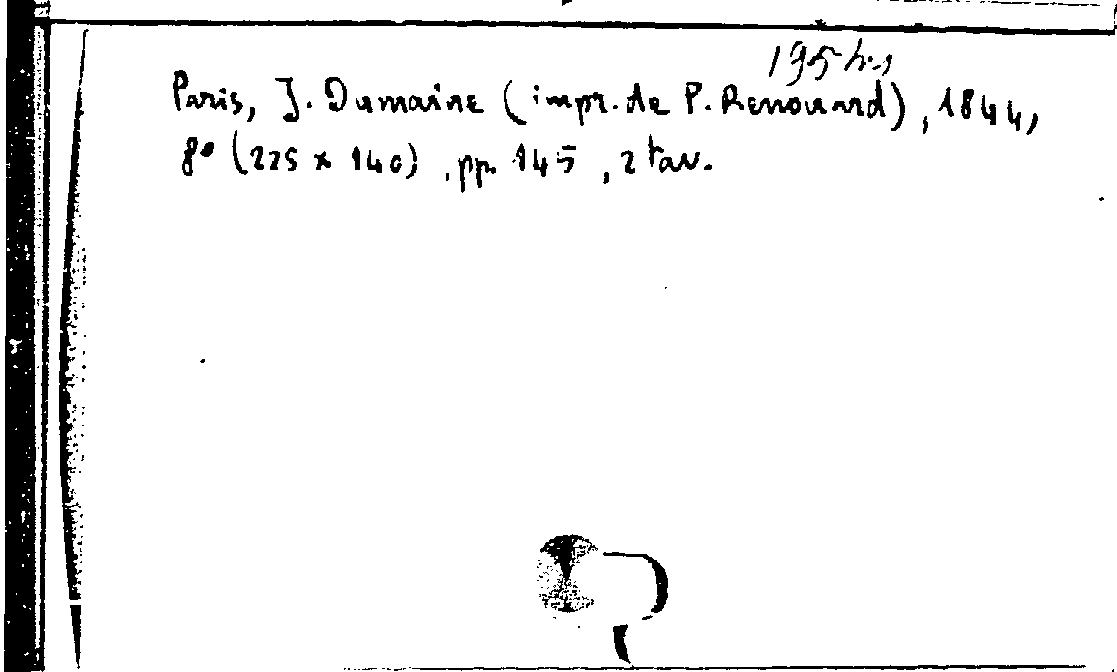 Paris, J. Dumaine (impr. de P. Renouard), 1844,
8° (225 x 140), pp. 145, 2 tav.